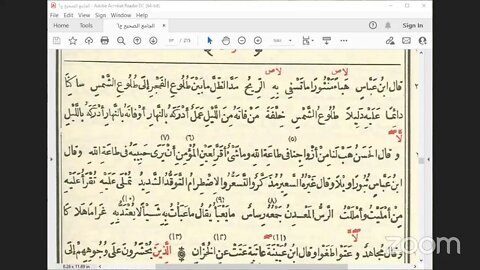 Adobe Acrobat Reader DC (64-bit)
File Edit View Sign Window Help
Home Tools الجامع الصحيح ج٦
قال ابن عباس هباء منثورا ما تسفي به الريح مد الظل ما بين طلوع الفجر إلى طلوع الشمس ساكنا
دائما عليه دليلا طلوع الشمس خلفة من فاته من الليل عمل أدركه بالنهار أو فاته بالنهار أدركه بالليل
وقال الحسن هب لنا من أزواجنا في طاعة الله وما شيء أقر لعين المؤمن أن يرى حبيبه في طاعة الله وقال
ابن عباس ثبورا ويلا وقال غيره السعير مذكر والتسعر والاضطرام التوقد الشديد تملى عليه تقرأ عليه
من أمليت وأمللت الرس المعدن جمعه رساس ما يعبأ يقال ما عبأت به شيئا لا يعتد به غراما هلاكا
وقال مجاهد وعتوا طغوا وقال ابن عيينة عاتية عتت عن الخزان الذين يحشرون على وجوههم إلى
8.26 x 11.69 in
zoom